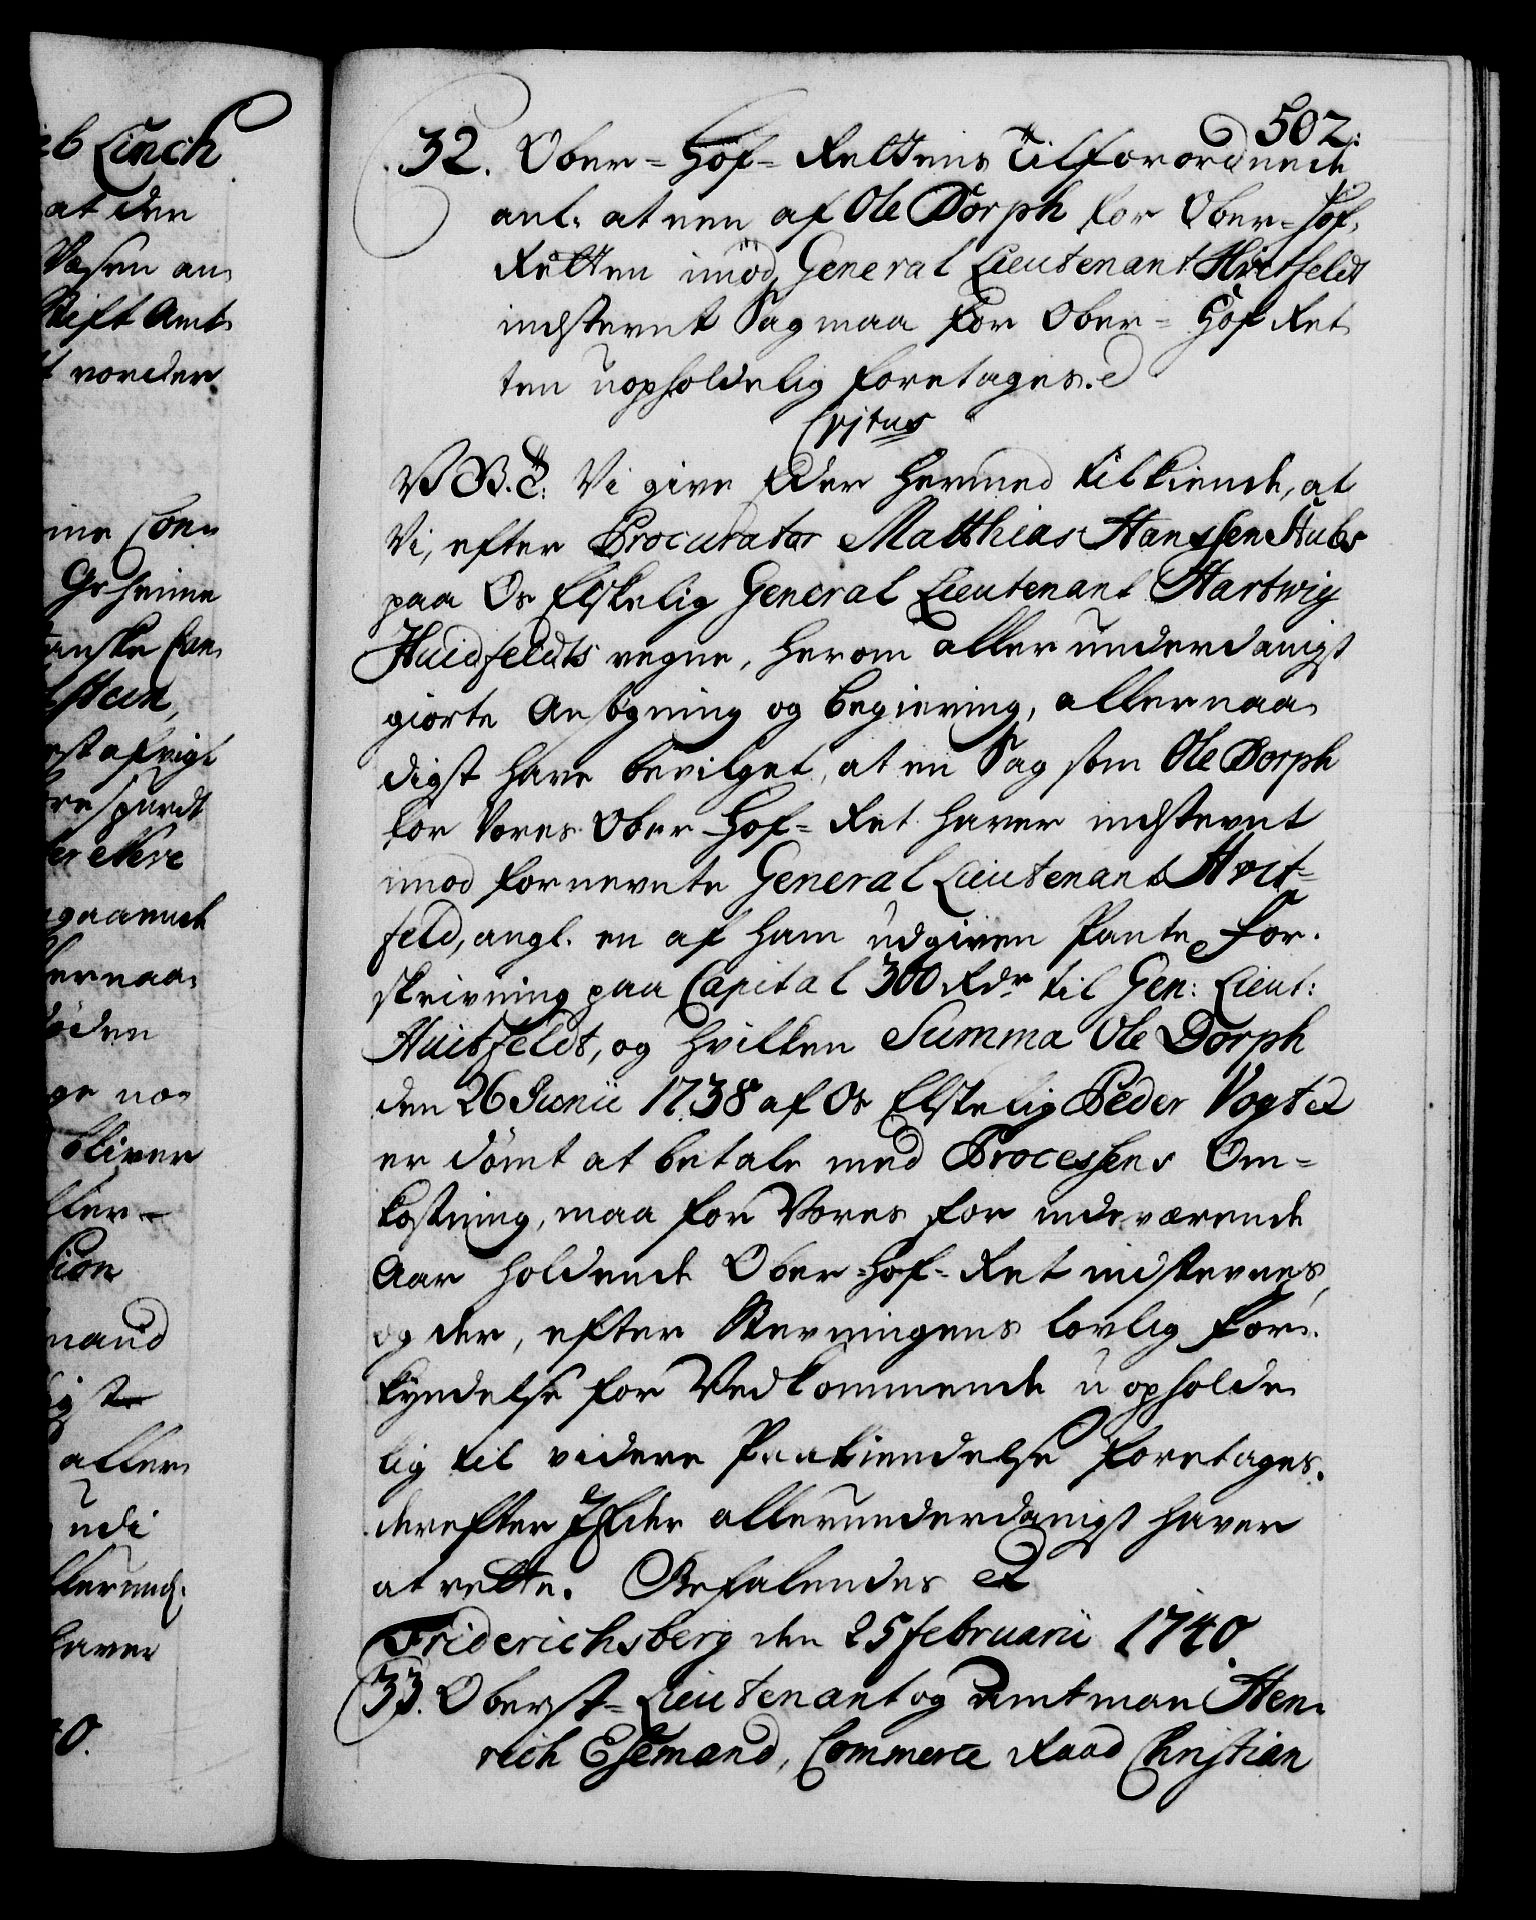 502.
32. Ober-Hof-Rettens Tilforordnede
anl: at een af Ole Dorph for Ober-Hof-
Retten imod General Lieutenant Hvitfeldt
indstevnt Sag maa for Ober-Hof Ret
ten uopholdelig foretages.
Vi give Eder hermed tilkiende, at
Vi, efter Procurator Matthias Hanssen Hubs
paa Os Elskelig General Lieutenant Hartwig
Huidfeldts vegne, herom allerunderdanigst
giorte Ansøgning og Begiering, allernaa
digst have bevilget, at en Sag som Ole Dorph
for Vores Ober-Hof-Ret haver indstevnt
imod fornevnte General Lieutenant Hvit-
feld, angl. en af ham udgiven Pante For-
skrivning paa Capital 300 Rdr til Gen: Lieut:
Huitfeldt, og hvilken Summa Ole Dorph
den 26 Junii 1738 af Os Elskelig Peder Vogt
er dømt at betale med Processens Om-
kostning, maa for Vores for indeværende
Aar holdende Ober-Hof-Ret indstevnes,
og der, efter Stevningens lovlig For-
kyndelse for Vedkommende uopholde
lig til videre Paakiendelse foretages.
derefter I Eder allerunderdanigst haver
at rette. Befalendes
Friderichsberg den 25 februarii 1740.
33. Oberst-Lieutenant og Amtman Hen-
rich Esemand, Commerce Raad Christian
eb Linch
at den
Væsen an
Stift Amt
vorder
ine Con
Geheime
anske Can
stein,
gaaende
ernaa
øden
ge no
bliver
ller
tion
mand
gst
aller
udi
haver
40.